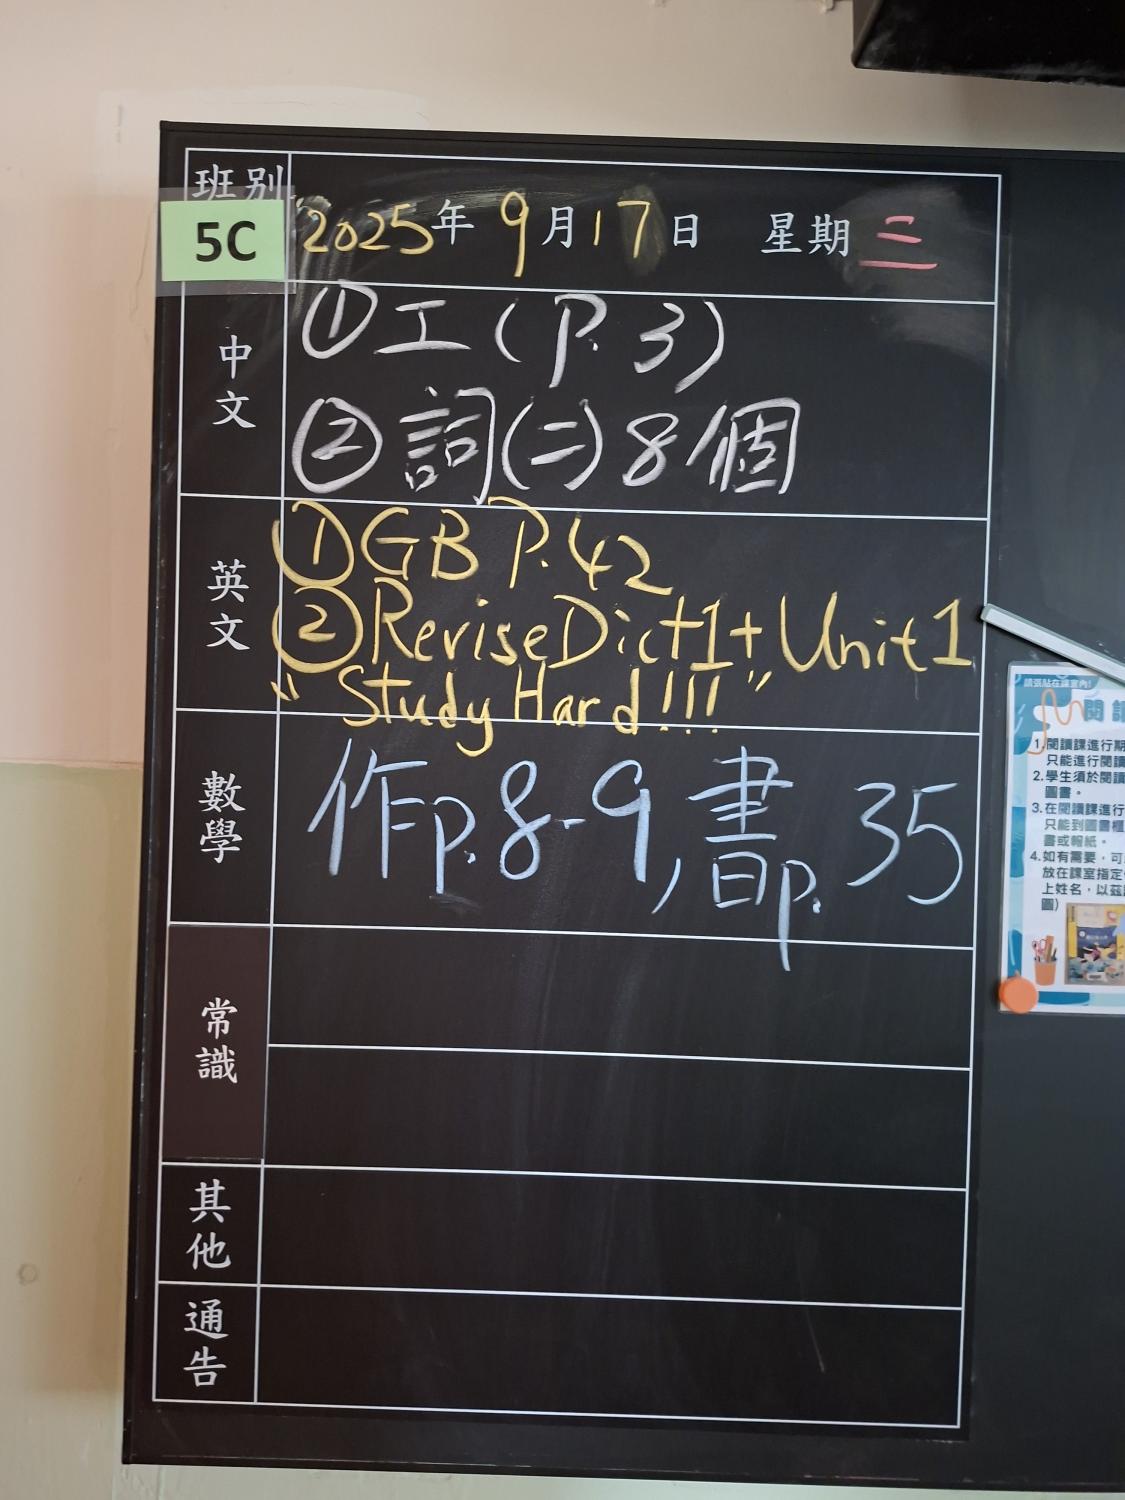 班別
5C
2025年 9月17日 星期三
中文
①工(P.3)
②詞(二)8個
英文
①GB P.42
②Revise Dict1+Unit1
"Study Hard!!!"
數學
作p.8-9,書p.35
常識
其他
通告
請張貼在課室內!
閱讀
1.閱讀課進行期
只能進行閱讀
2.學生須於閱讀
圖書。
3.在閱讀課進行
只能到圖書櫃
書或報紙。
4.如有需要,可
放在課室指定
上姓名,以茲
圖)